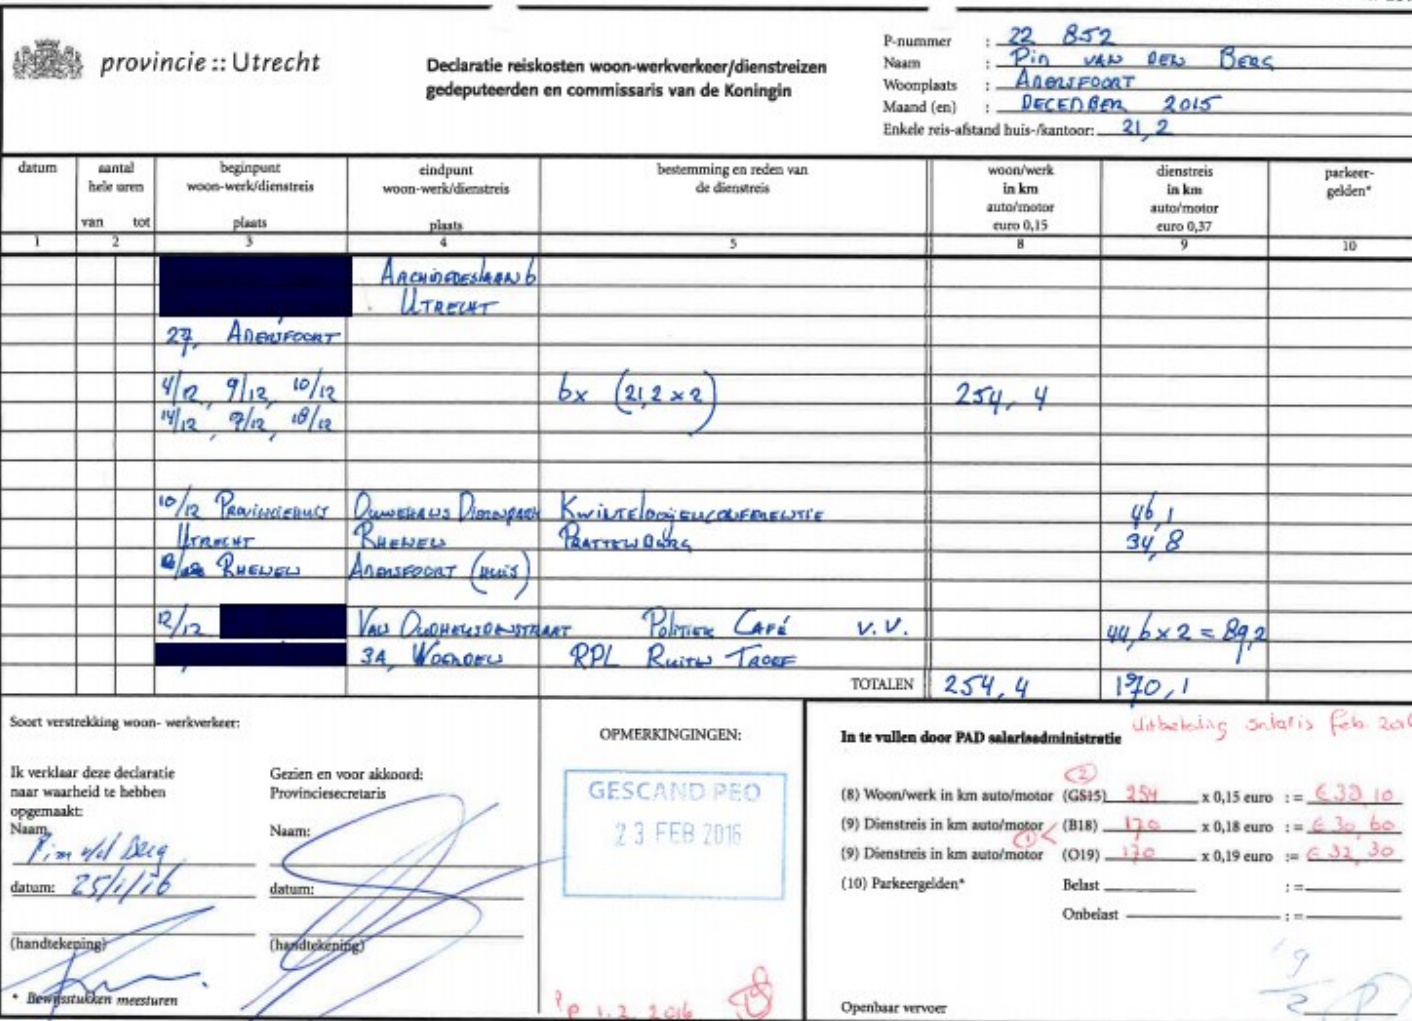 provincie :: Utrecht
Declaratie reiskosten woon-werkverkeer/dienstreizen
gedeputeerden en commissaris van de Koningin
P-nummer : 22 852
Naam : Pim VAN DEN BERG
Woonplaats : AMERSFOORT
Maand (en) : DECEMBER 2015
Enkele reis-afstand huis-/kantoor: 21,2
datum
aantal hele uren van tot
beginpunt woon-werk/dienstreis plaats
eindpunt woon-werk/dienstreis plaats
bestemming en reden van de dienstreis
woon/werk in km auto/motor euro 0,15
dienstreis in km auto/motor euro 0,37
parkeer-gelden*
1 2 3 4 5 8 9 10
ARCHIMEDESLAAN 6
UTRECHT
27, AMERSFOORT
4/12, 9/12, 10/12 6x (21,2 x 2) 254,4
14/12, 7/12, 18/12
10/12 PROVINCIEHUIS OUWEHANDS DIERENPARK KWINTELOOIJENCONFERENTIE 46,1
UTRECHT RHENEN PRATTENBURG 34,8
RHENEN AMERSFOORT (HUIS)
12/12 VAN OUDHEUSDENSTRAAT POLITIEK CAFÉ V.V. 44,6 x 2 = 89,2
3A, WOERDEN RPL
TOTALEN 254,4 170,1
Soort verstrekking woon- werkverkeer:
Ik verklaar deze declaratie
naar waarheid te hebben
opgemaakt:
Naam,
Pim v/d Berg
datum: 25/1/16
(handtekening)
* Bewijsstukken meesturen
Gezien en voor akkoord:
Provinciesecretaris
Naam:
datum:
(handtekening)
OPMERKINGINGEN:
GESCAND PEO
23 FEB 2016
1.2.2016
Uitbetaling salaris feb. 2016
In te vullen door PAD salarisadministratie
(2)
(8) Woon/werk in km auto/motor (GS15) 254 x 0,15 euro : = € 38,10
(9) Dienstreis in km auto/motor (B18) 170 x 0,18 euro : = € 30,60
(1)
(9) Dienstreis in km auto/motor (O19) 170 x 0,19 euro := € 32,30
(10) Parkeergelden* Belast : =
Onbelast : =
9/2
Openbaar vervoer